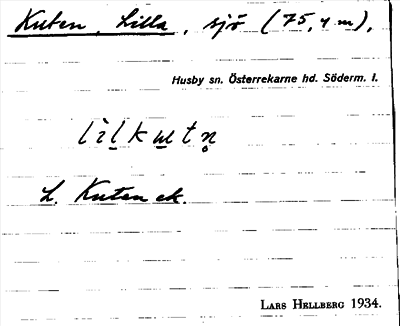 Kuten, Lilla, sjö (75,4 m),
Husby sn. Österrekarne hd. Söderm. l.
lìl̠ku̠tn̥
L. Kuten ek.
LARS HELLBERG 1934.